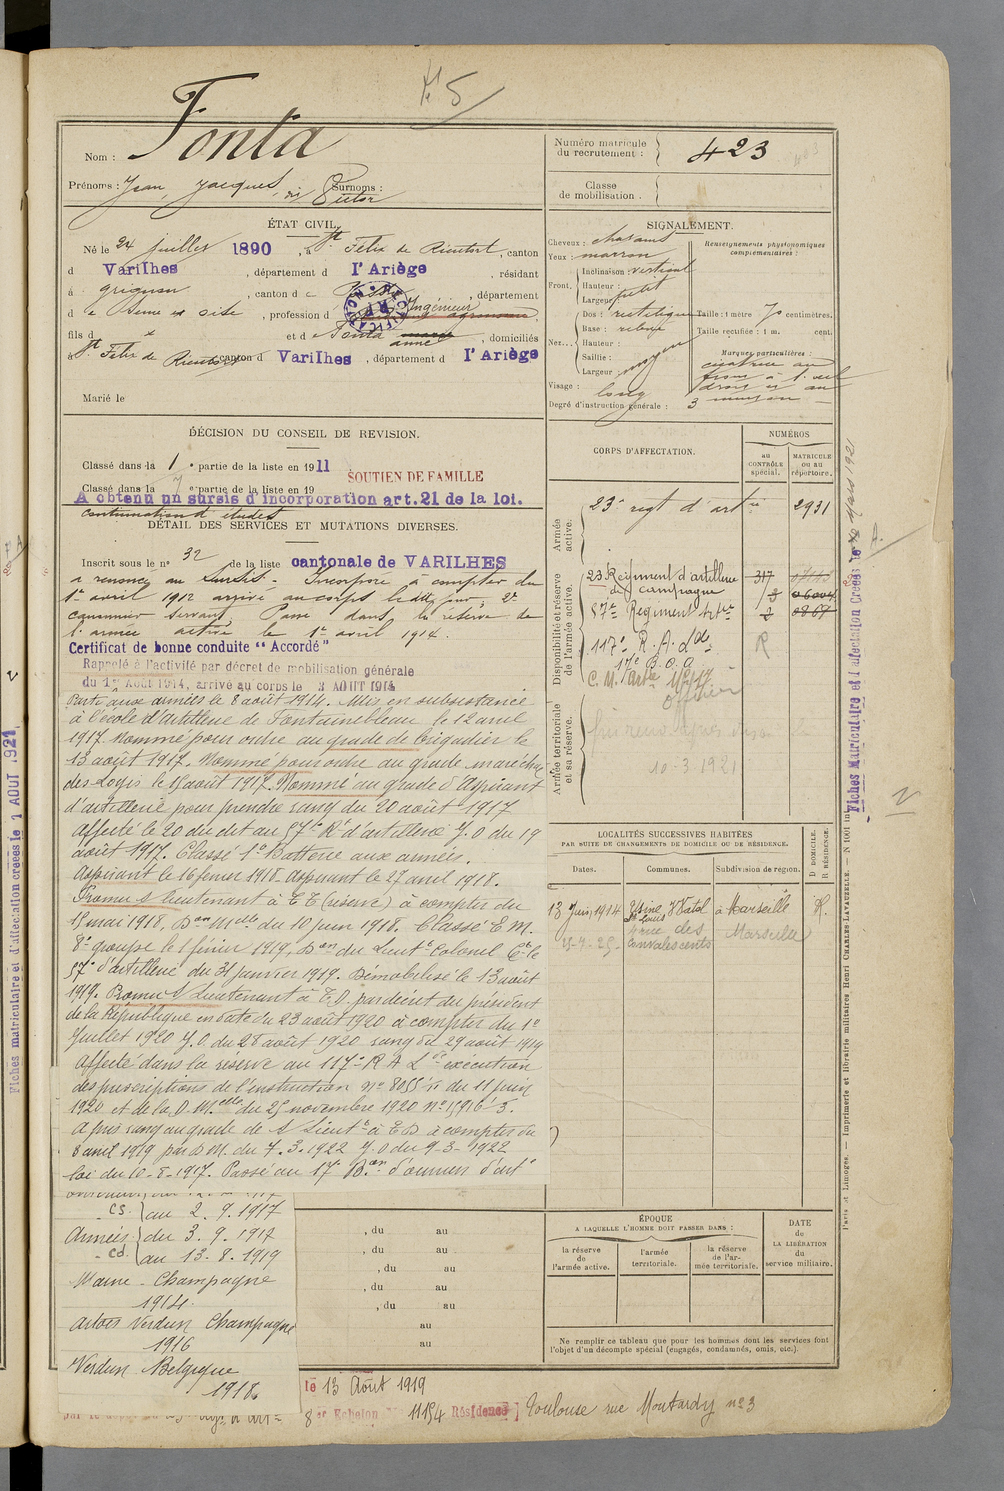 N° 5
Nom : Fonta
Prénoms : Jean, Jacques, dit Victor Surnoms :
Numéro matricule du recrutement : 423
Classe de mobilisation .
ÉTAT CIVIL.
Né le 24 juillet 1890, à St Felix de Rieutort, canton
d Varilhes, département d l'Ariège, résidant
à Grignon, canton d e Poissy, département
d e Seine et Oise, profession d Ingénieur agronome
fils d x et de Fonta marie anne, domiciliés
à St Felix de Rieutort canton d Varilhes, département d l'Ariège
Marié le
SIGNALEMENT.
Cheveux : chatains
Yeux : marron
Front, Inclinaison : vertical
Hauteur :
Largeur petit
Nez... Dos : rectiligne
Base : relevé
Hauteur :
Saillie :
Largeur : moyen
Visage : long
Degré d'instruction générale : 3
Renseignements physionomiques complémentaires :
Taille : 1 mètre 70 centimètres.
Taille rectifiée : 1 m. cent.
Marques particulières :
cicatrice au
DÉCISION DU CONSEIL DE REVISION.
Classé dans la 1 e partie de la liste en 1911
SOUTIEN DE FAMILLE
Classé dans la 7 e partie de la liste en 19
A obtenu un sursis d'incorporation art.21 de la loi.
continuation d'études
DÉTAIL DES SERVICES ET MUTATIONS DIVERSES.
Inscrit sous le n° 32 de la liste cantonale de VARILHES
a renoncé au sursis. Incorporé à compter du
1er avril 1912 arrivé au corps le dit jour 2e
canonnier servant Passé dans la réserve de
l'armée active le 1er avril 1914.
Certificat de bonne conduite "Accordé"
Rappelé à l'activité par décret de mobilisation générale
du 1er Août 1914, arrivé au corps le 3 AOUT 1914
Parti aux armées le 8 août 1914. Mis en subsistance
à l'école d'artillerie de Fontainebleau le 12 avril
1917. Nommé pour ordre au grade de brigadier le
13 août 1917. Nommé pour ordre au grade maréchal
des Logis le 15 août 1917. Nommé au grade d'Aspirant
d'artillerie pour prendre rang du 20 août 1917
affecté le 20 du dit au 57e Rt d'artillerie J.O du 19
août 1917. Classé 1e Batterie aux armées.
Aspirant le 16 février 1918. Aspirant le 27 avril 1918.
Promu s lieutenant à TT (réserve) à compter du
15 mai 1918, Don Melle du 10 juin 1918. Classé E.M.
8e groupe le 1 février 1919, Don du Lieutt Colonel Ct le
57e d'artillerie du 31 janvier 1919. Démobilisé le 13 août
1919. Promu s Lieutenant à T.D. par décret du président
de la République en date du 23 août 1920 à compter du 1er
Juillet 1920 J.O. du 28 août 1920 rang du 29 août 1914
Affecté dans la réserve au 117e R A L en exécution
des prescriptions de l'instruction n° 8055 1/11 du 11 juin
1920 et de la D.Melle du 25 novembre 1920 n° 15916 1/3.
A pris rang au grade de s Lieutt à T D à compter du
8 avril 1919 par D M. du 7.3.1922 J.O du 9-3-1922
loi du 10-8-1917. Passé au 17e Bon d'ouvriers d'artie
CS. au 2.9.1917
Armées du 3.9.1917
cd au 13.8.1919
Marne - Champagne
1914.
Artois Verdun Champagne
1916
Verdun Belgique
1918.
, du au
, du au
, du au
, du au
, du au
au
au
le 13 Août 1919
8 er Echelon N° 11154 Résidence] Toulouse rue Moutardy n° 3
CORPS D'AFFECTATION.
NUMÉROS
au CONTRÔLE spécial.
MATRICULE ou au répertoire.
Armée active.
23e regt d'artie 2931
Disponibilité et réserve de l'armée active.
23 Régiment d'artillerie de campagne 317
57me Régiment Artie 2 0867
117e R.A.Lde R
17e B.O.A
Armée territoriale et sa réserve.
officier
10-3-1921
LOCALITÉS SUCCESSIVES HABITÉES
PAR SUITE DE CHANGEMENTS DE DOMICILE OU DE RÉSIDENCE.
Dates. Communes. Subdivision de région. D. DOMICILE. R. RÉSIDENCE.
13 Juin 1914 Usine St Louis à Marseille R.
15-7-25 rue des convalescents Marseille
ÉPOQUE
A LAQUELLE L'HOMME DOIT PASSER DANS :
la réserve de l'armée active.
l'armée territoriale.
la réserve de l'armée territoriale.
DATE de LA LIBÉRATION du service militaire.
Ne remplir ce tableau que pour les hommes dont les services font
l'objet d'un décompte spécial (engagés, condamnés, omis, etc.).
Paris et Limoges. — Imprimerie et librairie militaires Henri CHARLES-LAVAUZELLE. — N 1001
Fiches Matriculaire et d'affectation Créées le Mars 1921
Fiches matriculaire et d'affectation créées le 1 AOUT 1921